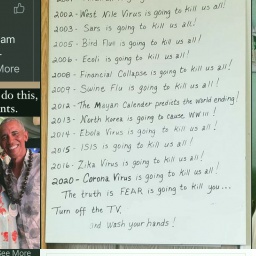 am
More
do this,
nts.
See More
2002-West Nile Virus is going to kill us all!
2003- Sars is going to kill us all!
2005- Bird Flu is going to kill us all!
2006- Ecoli is going to kill us all!
2008- Financial Collapse is going to kill us all!
2009- Swine Flu is going to kill us all!
2012- The Mayan Calender predicts the world ending!
2013- North Korea is going to cause WW III!
2014- Ebola Virus is going to kill us all!
2015- ISIS is going to kill us all!
2016- Zika Virus is going to kill us all!
2020- Corona Virus is going to kill us all!
The truth is FEAR is going to kill you...
Turn off the TV.
and wash your hands!